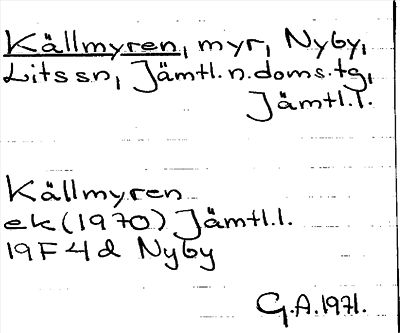 Källmyren, myr, Nyby,
Lits sn, Jämtl. n. doms. tg,
Jämtl. l.
Källmyren
ek (1970) Jämtl. l.
19F 4d Nyby
G.A. 1971.